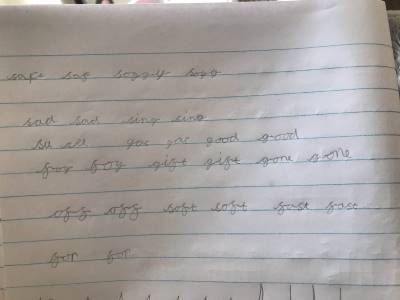 safe saf soggy sogg
sad sad sing sing
gas gas good good
fog fog gift gift gone gone
off off soft soft fast fast
for for